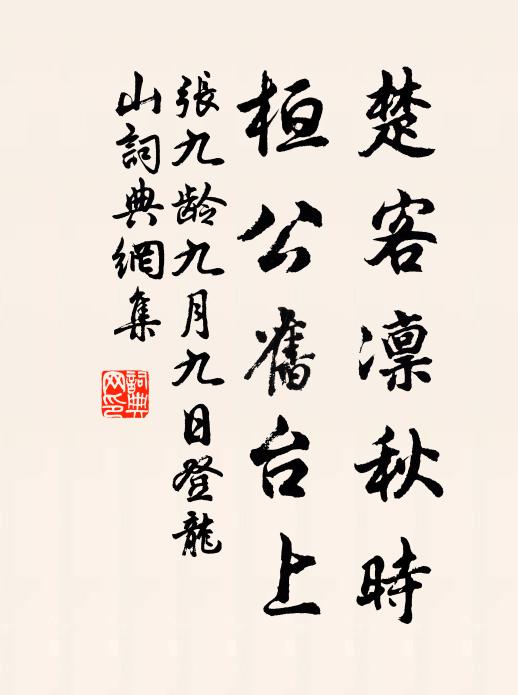 楚客凛秋時
桓公舊台上
張九龄九月九日登龍
山詞典網集
詞典
网印